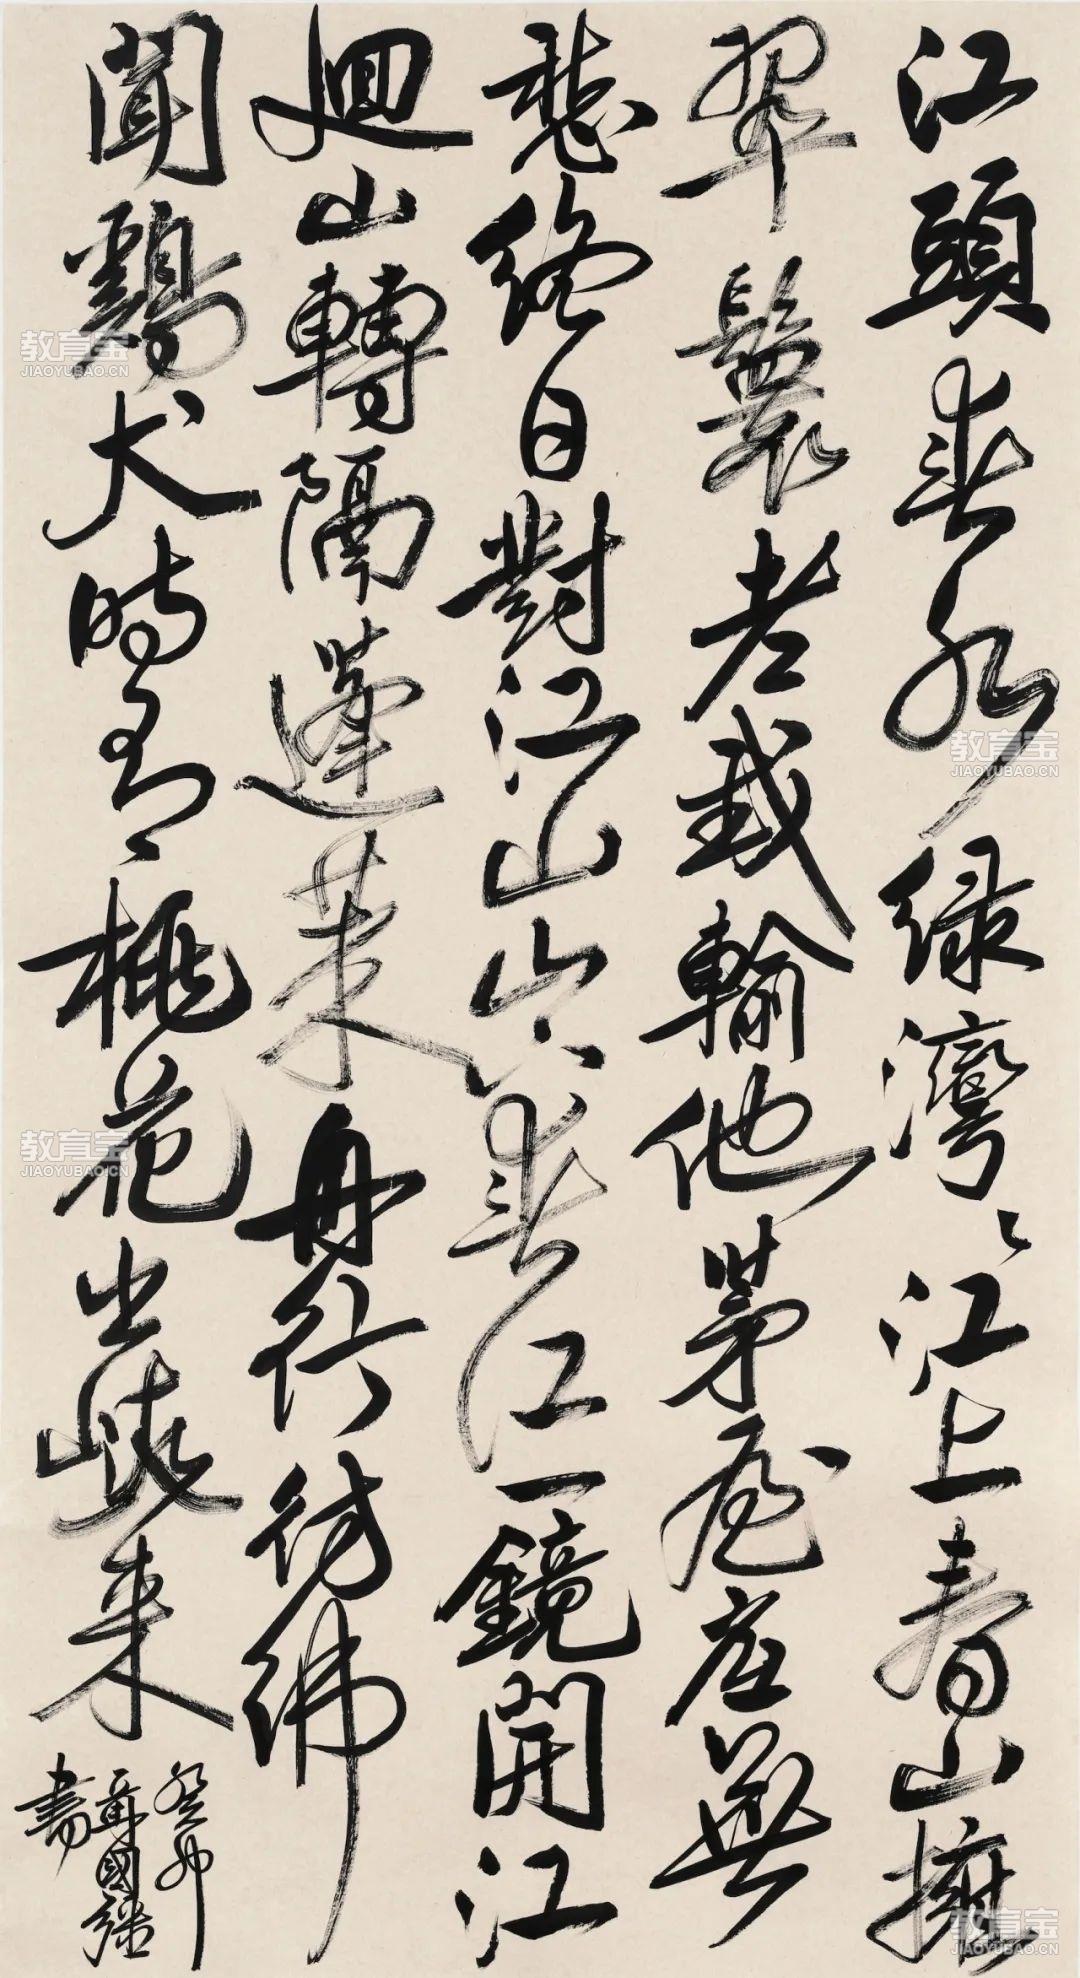 江頭春水绿灣灣江上青山擁
翠鬟老我輸他茅屋底無
愁終日對江山山下春江一鏡開江
廻山轉隔蓬莱舟行彷彿
聞鷄犬時有桃花出峽来
癸卯
聶國强
書
教育宝
JIAOYUBAO.CN
教育宝
JIAOYUBAO.CN
教育宝
JIAOYUBAO.CN
教育宝
JIAOYUBAO.CN